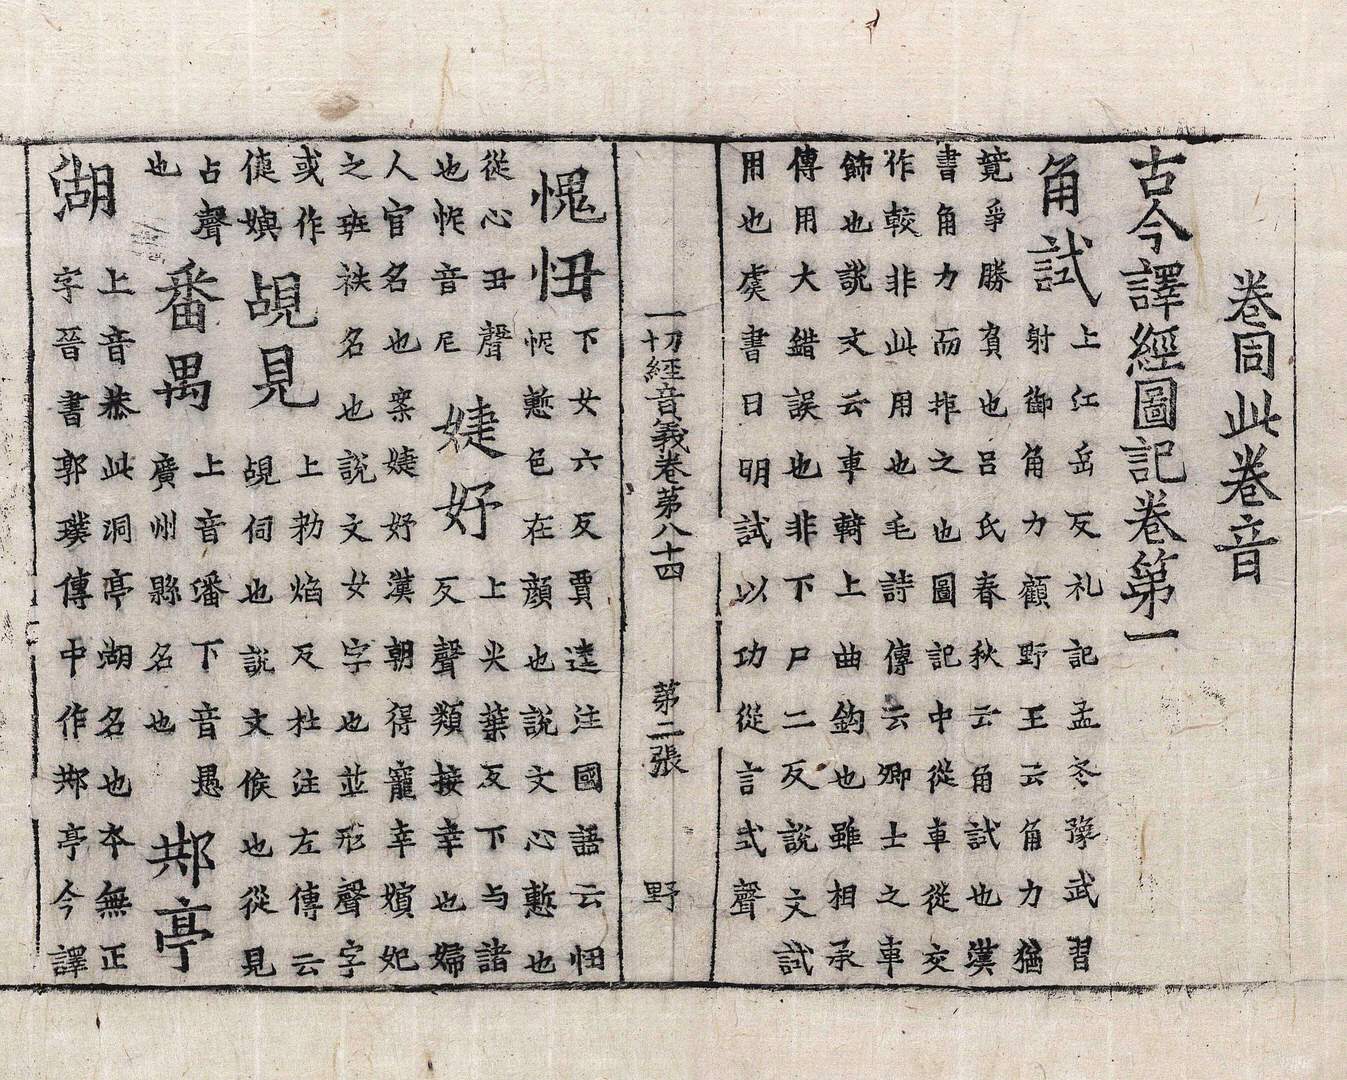 卷同此卷音
古今譯經圖記卷第一
角試
上江岳反礼記孟冬豫武習
射御角力顧野王云角力猶
竟爭勝負也呂氏春秋云角試也漢
書角力而拒之也圖記中從車從交
作較非此用也毛詩傳云卿士之車
飾也說文云車輢上曲鉤也雖相承
傳用大錯誤也非下尸二反說文試
用也虞書曰明試以功從言式聲
一切經音義卷第八十四 第二張 野
愧忸
下女六反賈逵注國語云忸
怩慙色在顏也說文心慙也
從心丑聲
也怩音尼
婕妤
上尖葉反下与諸
反聲類接幸也婦
人官名也案婕妤漢朝得寵幸嬪妃
之班袟名也說文女字也並形聲字
或作
倢㜔
覘見
上勑焰反杜注左傳云
覘伺也說文候也從見
占聲
也
番禺
上音潘下音愚
廣州縣名也
䢼亭
湖
上音恭此洞亭湖名也本無正
字晉書郭璞傳中作䢼亭今譯